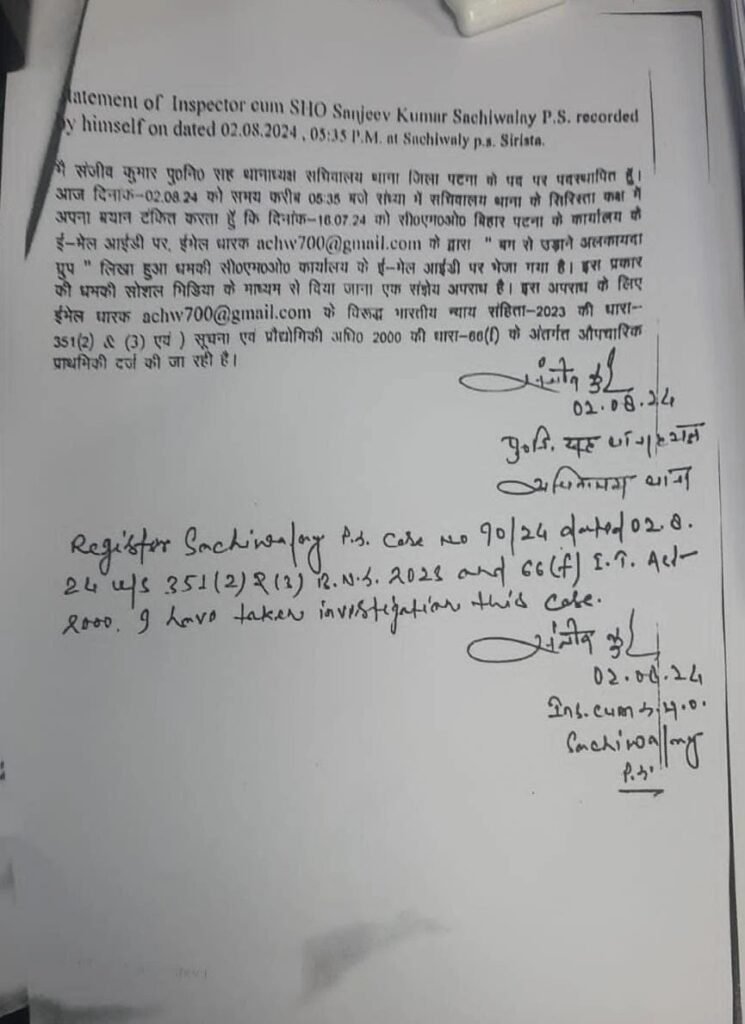 tatement of Inspector cum SHO Sanjeev Kumar Sachiwalay P.S. recorded
by himself on dated 02.08.2024 , 05:35 P.M. at Sachiwaly p.s. Sirista.
मैं संजीव कुमार पु०नि० सह थानाध्यक्ष सचिवालय थाना जिला पटना के पद पर पदस्थापित हूँ।
आज दिनांक-02.08.24 को समय करीब 05:35 बजे संध्या में सचिवालय थाना के सिरिस्ता कक्ष में
अपना बयान टंकित करता हूँ कि दिनांक-16.07.24 को सी०एम०ओ० बिहार पटना के कार्यालय के
ई-मेल आईडी पर, ईमेल धारक achw700@gmail.com के द्वारा " बम से उड़ाने अलकायदा
ग्रुप " लिखा हुआ धमकी सी०एम०ओ० कार्यालय के ई-मेल आईडी पर भेजा गया है। इस प्रकार
की धमकी सोशल मिडिया के माध्यम से दिया जाना एक संज्ञेय अपराध है। इस अपराध के लिए
ईमेल धारक achw700@gmail.com के विरूद्ध भारतीय न्याय संहिता-2023 की धारा-
351(2) & (3) एवं ) सूचना एवं प्रौद्योगिकी अधि० 2000 की धारा-66(f) के अंतर्गत औपचारिक
प्राथमिकी दर्ज की जा रही है।
संजीव कु
02.08.24
पु०नि. सह थानाध्यक्ष
सचिवालय थाना
Register Sachiwalay P.S. Case No 70/24 dated 02.8.
24 u/s 351(2) & (3) B.N.S. 2023 and 66(f) I.T. Act-
2000. I have taken investigation this case.
संजीव कु
02.08.24
Ins. cum S.H.O.
Sachiwalay
P.S.